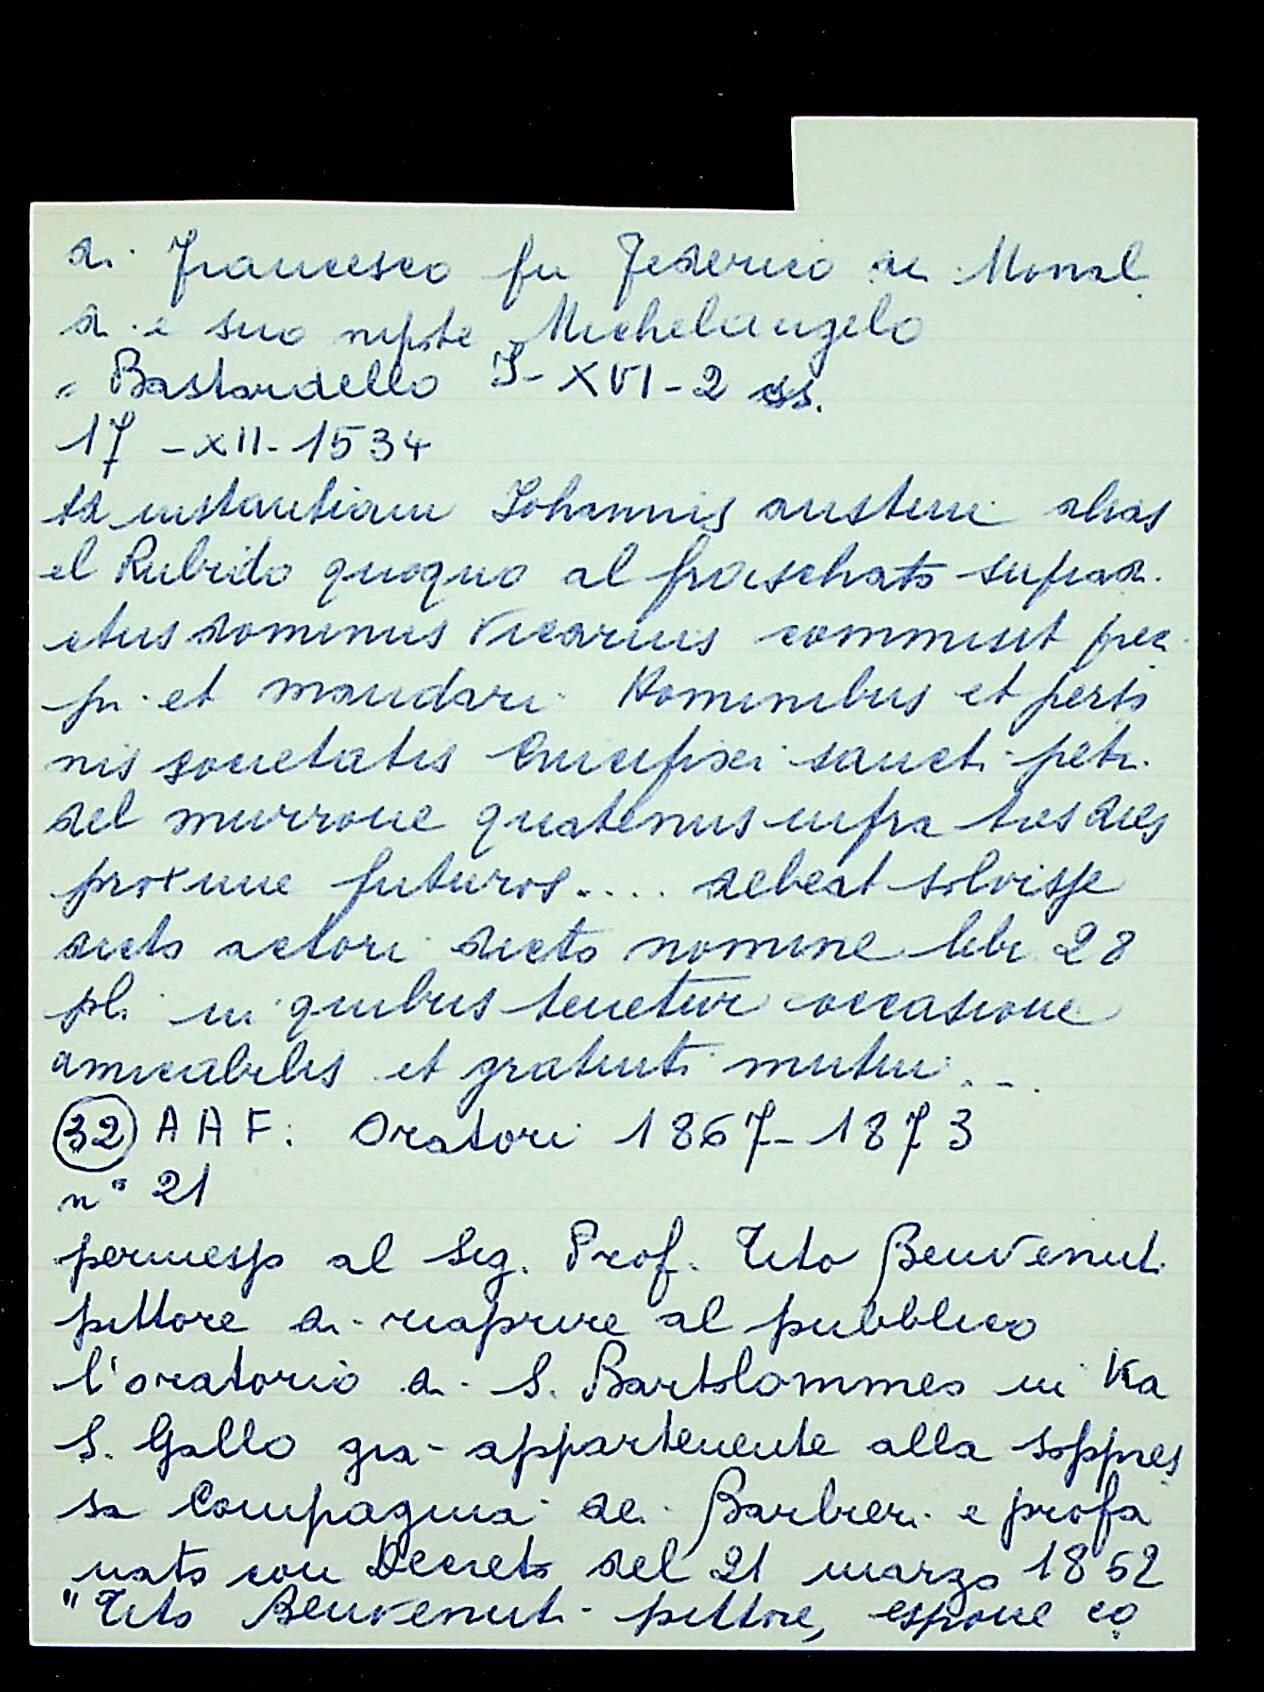 di Francesco fu Federico dei Monal
di e suo nipote Michelangelo
" Bastardello I-XVI-2 ss.
17 -XII-1534
ad instantiam Iohannis austini alias
el Rubido quoquo al fraschato suprad.
ctus dominus Vicarius commisit prec
pi et mandari hominibus et perso
nis societatis Crucifixi sancti petri
del murrone quatenus infra tres dies
proxime futuros.... debeat solvisse
dicto actori dicto nomine libr 28
pli in quibus tenetur occasione
amicabilis et gratuiti mutui...
32 AAF: Oratori 1867-1873
n° 21
permesso al Sig. Prof. Tito Benvenuti
pittore di riaprire al pubblico
l'oratorio di S. Bartolommeo in Via
S. Gallo già appartenente alla soppres
sa Compagnia dei Barbieri e profa
nato con Decreto del 21 marzo 1852
"Tito Benvenuti pittore, espone co